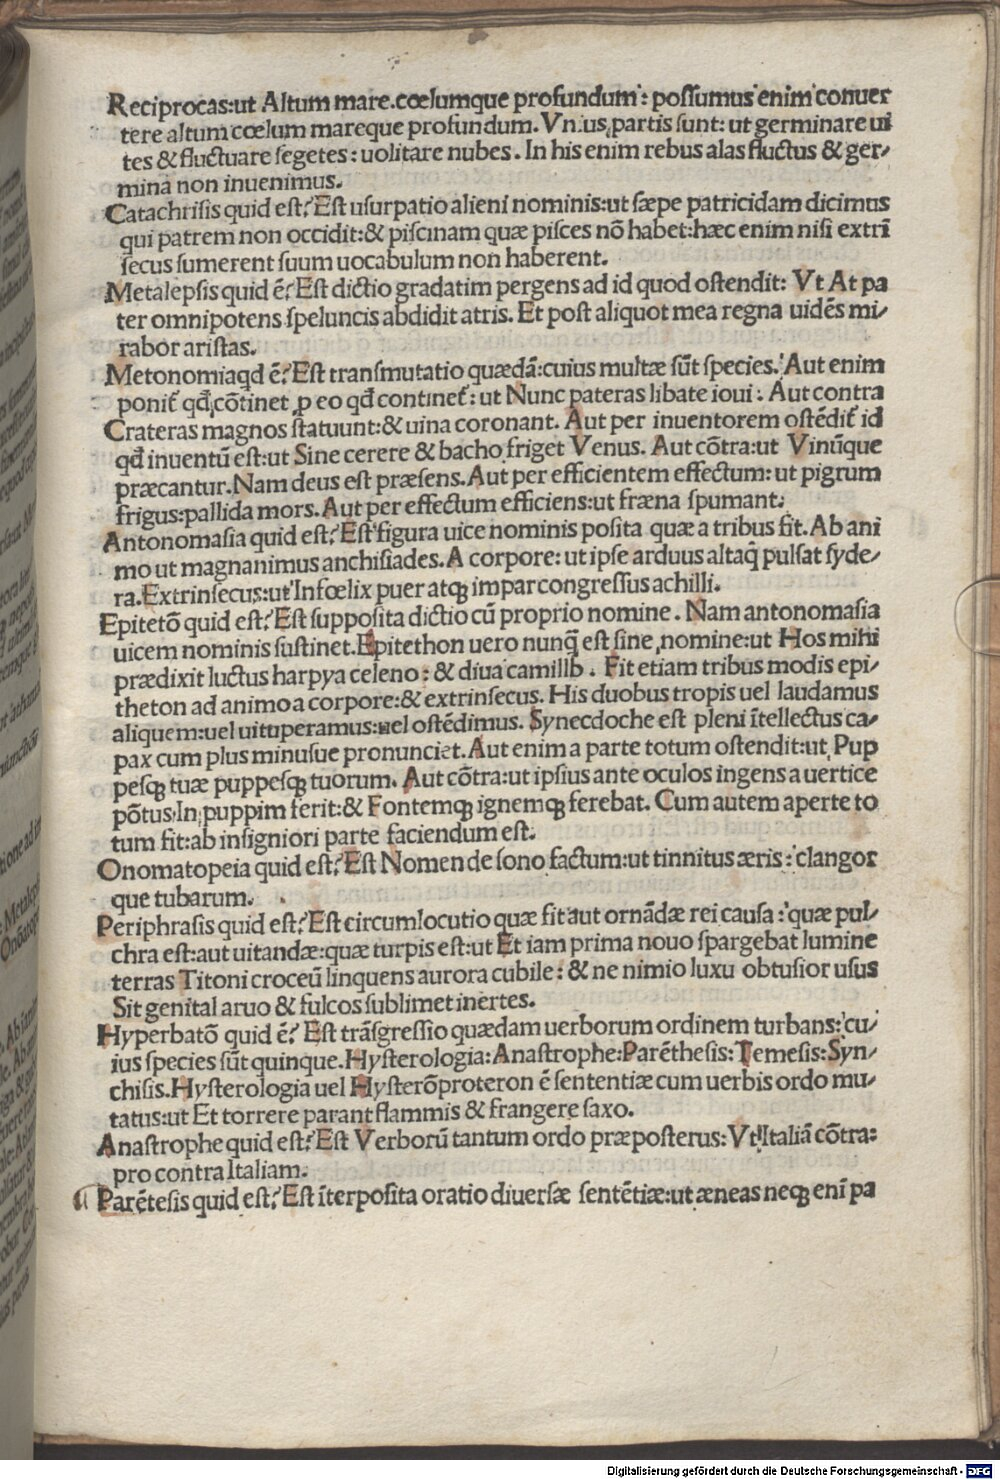 Reciprocas:ut Altum mare.cœlumque profundum: possumus enim conuer
tere altum cœlum mareque profundum. Vnius partis sunt: ut germinare ui
tes & fluctuare segetes: uolitare nubes. In his enim rebus alas fluctus & ger-
mina non inuenimus.
Catachrisis quid est? Est usurpatio alieni nominis:ut sæpe patricidam dicimus
qui patrem non occidit:& piscinam quæ pisces nõ habet:hæc enim nisi extrĩ
secus sumerent suum uocabulum non haberent.
Metalepsis quid ẽ? Est dictio gradatim pergens ad id quod ostendit: Vt At pa
ter omnipotens speluncis abdidit atris. Et post aliquot mea regna uidẽs mi-
rabor aristas.
Metonomia qd ẽ? Est transmutatio quædã:cuius multæ sũt species. Aut enim
ponit̃ qđ cõtinet ꝓ eo qđ continet̃: ut Nunc pateras libate ioui: Aut contra
Crateras magnos statuunt:& uina coronant. Aut per inuentorem ostẽdit̃ id
qđ inuentũ est:ut Sine cerere & bacho friget Venus. Aut cõtra:ut Vinũque
præcantur. Nam deus est præsens. Aut per efficientem effectum: ut pigrum
frigus:pallida mors. Aut per effectum efficiens:ut fræna spumant.
Antonomasia quid est? Est figura uice nominis posita quæ a tribus fit. Ab ani
mo ut magnanimus anchisiades. A corpore: ut ipse arduus altaq̃ pulsat syde-
ra. Extrinsecus:ut Infœlix puer atqꝫ impar congressus achilli.
Epitetõ quid est? Est supposita dictio cũ proprio nomine. Nam antonomasia
uicem nominis sustinet. Epitethon uero nunq̃ est sine nomine:ut Hos mihi
prædixit luctus harpya celeno: & diua camillb. Fit etiam tribus modis epi-
theton ad animo a corpore:& extrinsecus. His duobus tropis uel laudamus
aliquem:uel uituperamus:uel ostẽdimus. Synecdoche est pleni ĩtellectus ca-
pax cum plus minusue pronunciet. Aut enim a parte totum ostendit:ut Pup
pesqꝫ tuæ puppesqꝫ tuorum. Aut cõtra:ut ipsius ante oculos ingens a uertice
põtus In puppim ferit:& Fontemqꝫ ignemqꝫ ferebat. Cum autem aperte to
tum fit:ab insigniori parte faciendum est.
Onomatopeia quid est? Est Nomen de sono factum:ut tinnitus æris: clangor
que tubarum.
Periphrasis quid est? Est circumlocutio quæ fit aut ornãdæ rei causa: quæ pul-
chra est:aut uitandæ:quæ turpis est:ut Et iam prima nouo spargebat lumine
terras Titoni croceũ linquens aurora cubile: & ne nimio luxu obtusior usus
Sit genital aruo & sulcos sublimet inertes.
Hyperbatõ quid ẽ? Est trãsgressio quædam uerborum ordinem turbans: cu-
ius species sũt quinque. Hysterologia: Anastrophe: Parẽthesis: Temesis: Syn-
chisis. Hysterologia uel Hysterõproteron ẽ sententiæ cum uerbis ordo mu-
tatus:ut Et torrere parant flammis & frangere saxo.
Anastrophe quid est? Est Verborũ tantum ordo præposterus: Vt Italiã cõtra:
pro contra Italiam.
Parẽtesis quid est? Est ĩterposita oratio diuersæ sentẽtiæ:ut æneas neqꝫ enĩ pa
Digitalisierung gefördert durch die Deutsche Forschungsgemeinschaft - DFG